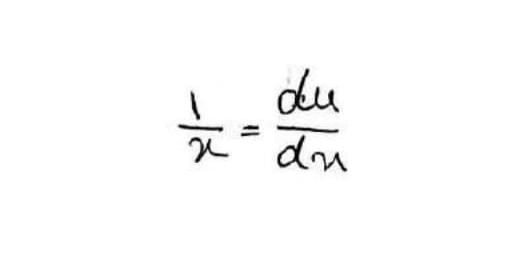 1/x = du/dx